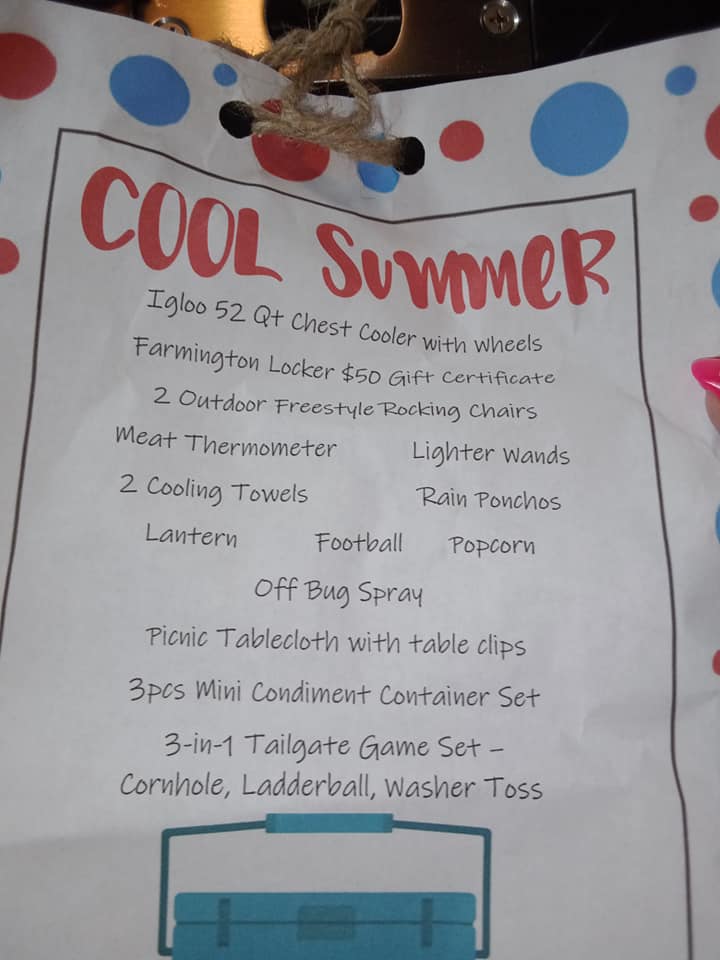 COOL SUMMER
Igloo 52 Qt Chest Cooler with wheels
Farmington Locker $50 Gift Certificate
2 Outdoor Freestyle Rocking Chairs
Meat Thermometer Lighter Wands
2 Cooling Towels Rain Ponchos
Lantern Football Popcorn
Off Bug Spray
Picnic Tablecloth with table clips
3pcs Mini Condiment Container Set
3-in-1 Tailgate Game Set –
Cornhole, Ladderball, Washer Toss